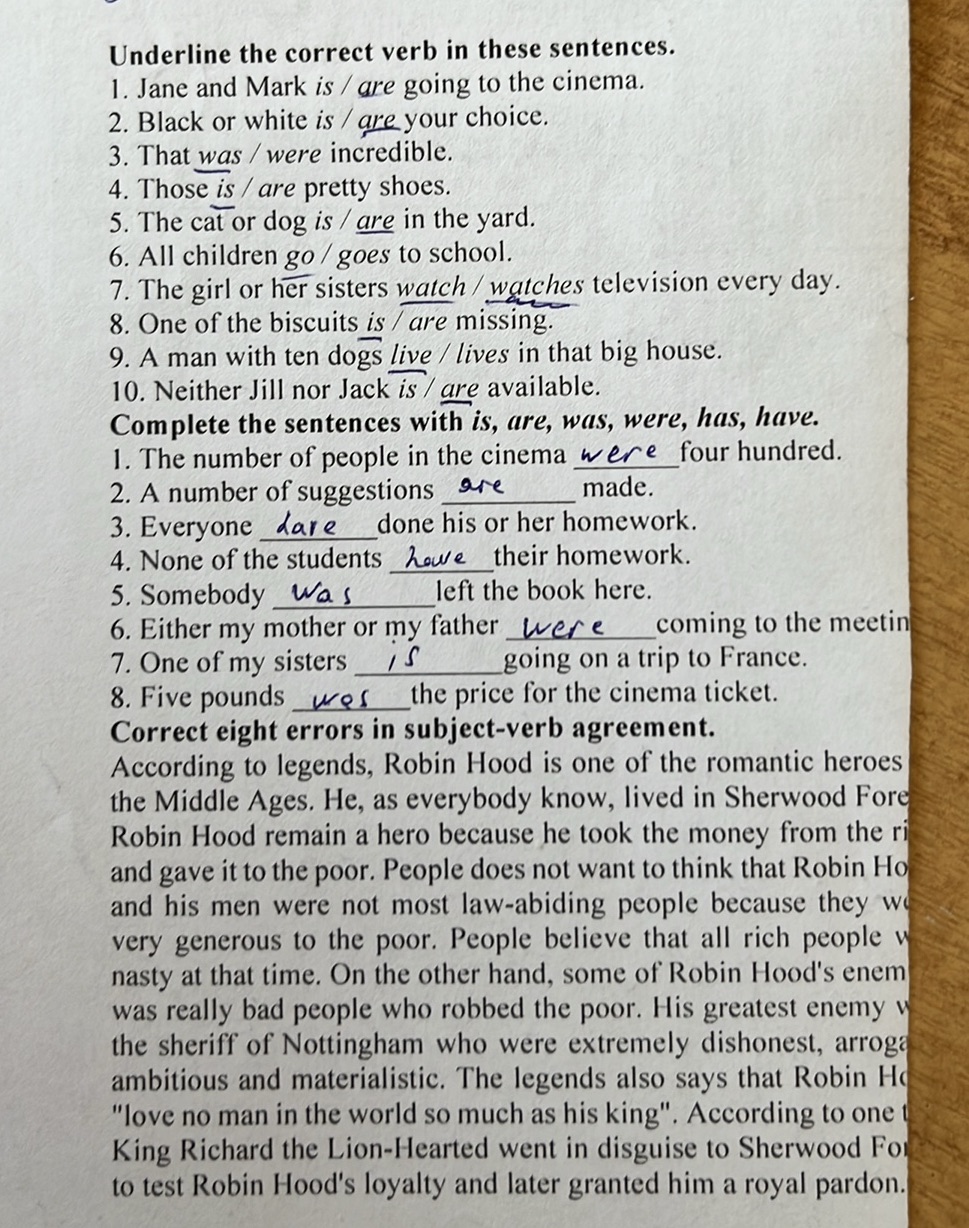 Underline the correct verb in these sentences.
1. Jane and Mark is / are going to the cinema.
2. Black or white is / are your choice.
3. That was / were incredible.
4. Those is / are pretty shoes.
5. The cat or dog is / are in the yard.
6. All children go / goes to school.
7. The girl or her sisters watch / watches television every day.
8. One of the biscuits is / are missing.
9. A man with ten dogs live / lives in that big house.
10. Neither Jill nor Jack is / are available.
Complete the sentences with is, are, was, were, has, have.
1. The number of people in the cinema were four hundred.
2. A number of suggestions are made.
3. Everyone done his or her homework.
4. None of the students have their homework.
5. Somebody was left the book here.
6. Either my mother or my father were coming to the meetin
7. One of my sisters is going on a trip to France.
8. Five pounds was the price for the cinema ticket.
Correct eight errors in subject-verb agreement.
According to legends, Robin Hood is one of the romantic heroes
the Middle Ages. He, as everybody know, lived in Sherwood Fore
Robin Hood remain a hero because he took the money from the ri
and gave it to the poor. People does not want to think that Robin Ho
and his men were not most law-abiding people because they w
very generous to the poor. People believe that all rich people
nasty at that time. On the other hand, some of Robin Hood's enem
was really bad people who robbed the poor. His greatest enemy
the sheriff of Nottingham who were extremely dishonest, arroga
ambitious and materialistic. The legends also says that Robin Ho
"love no man in the world so much as his king". According to one t
King Richard the Lion-Hearted went in disguise to Sherwood For
to test Robin Hood's loyalty and later granted him a royal pardon.